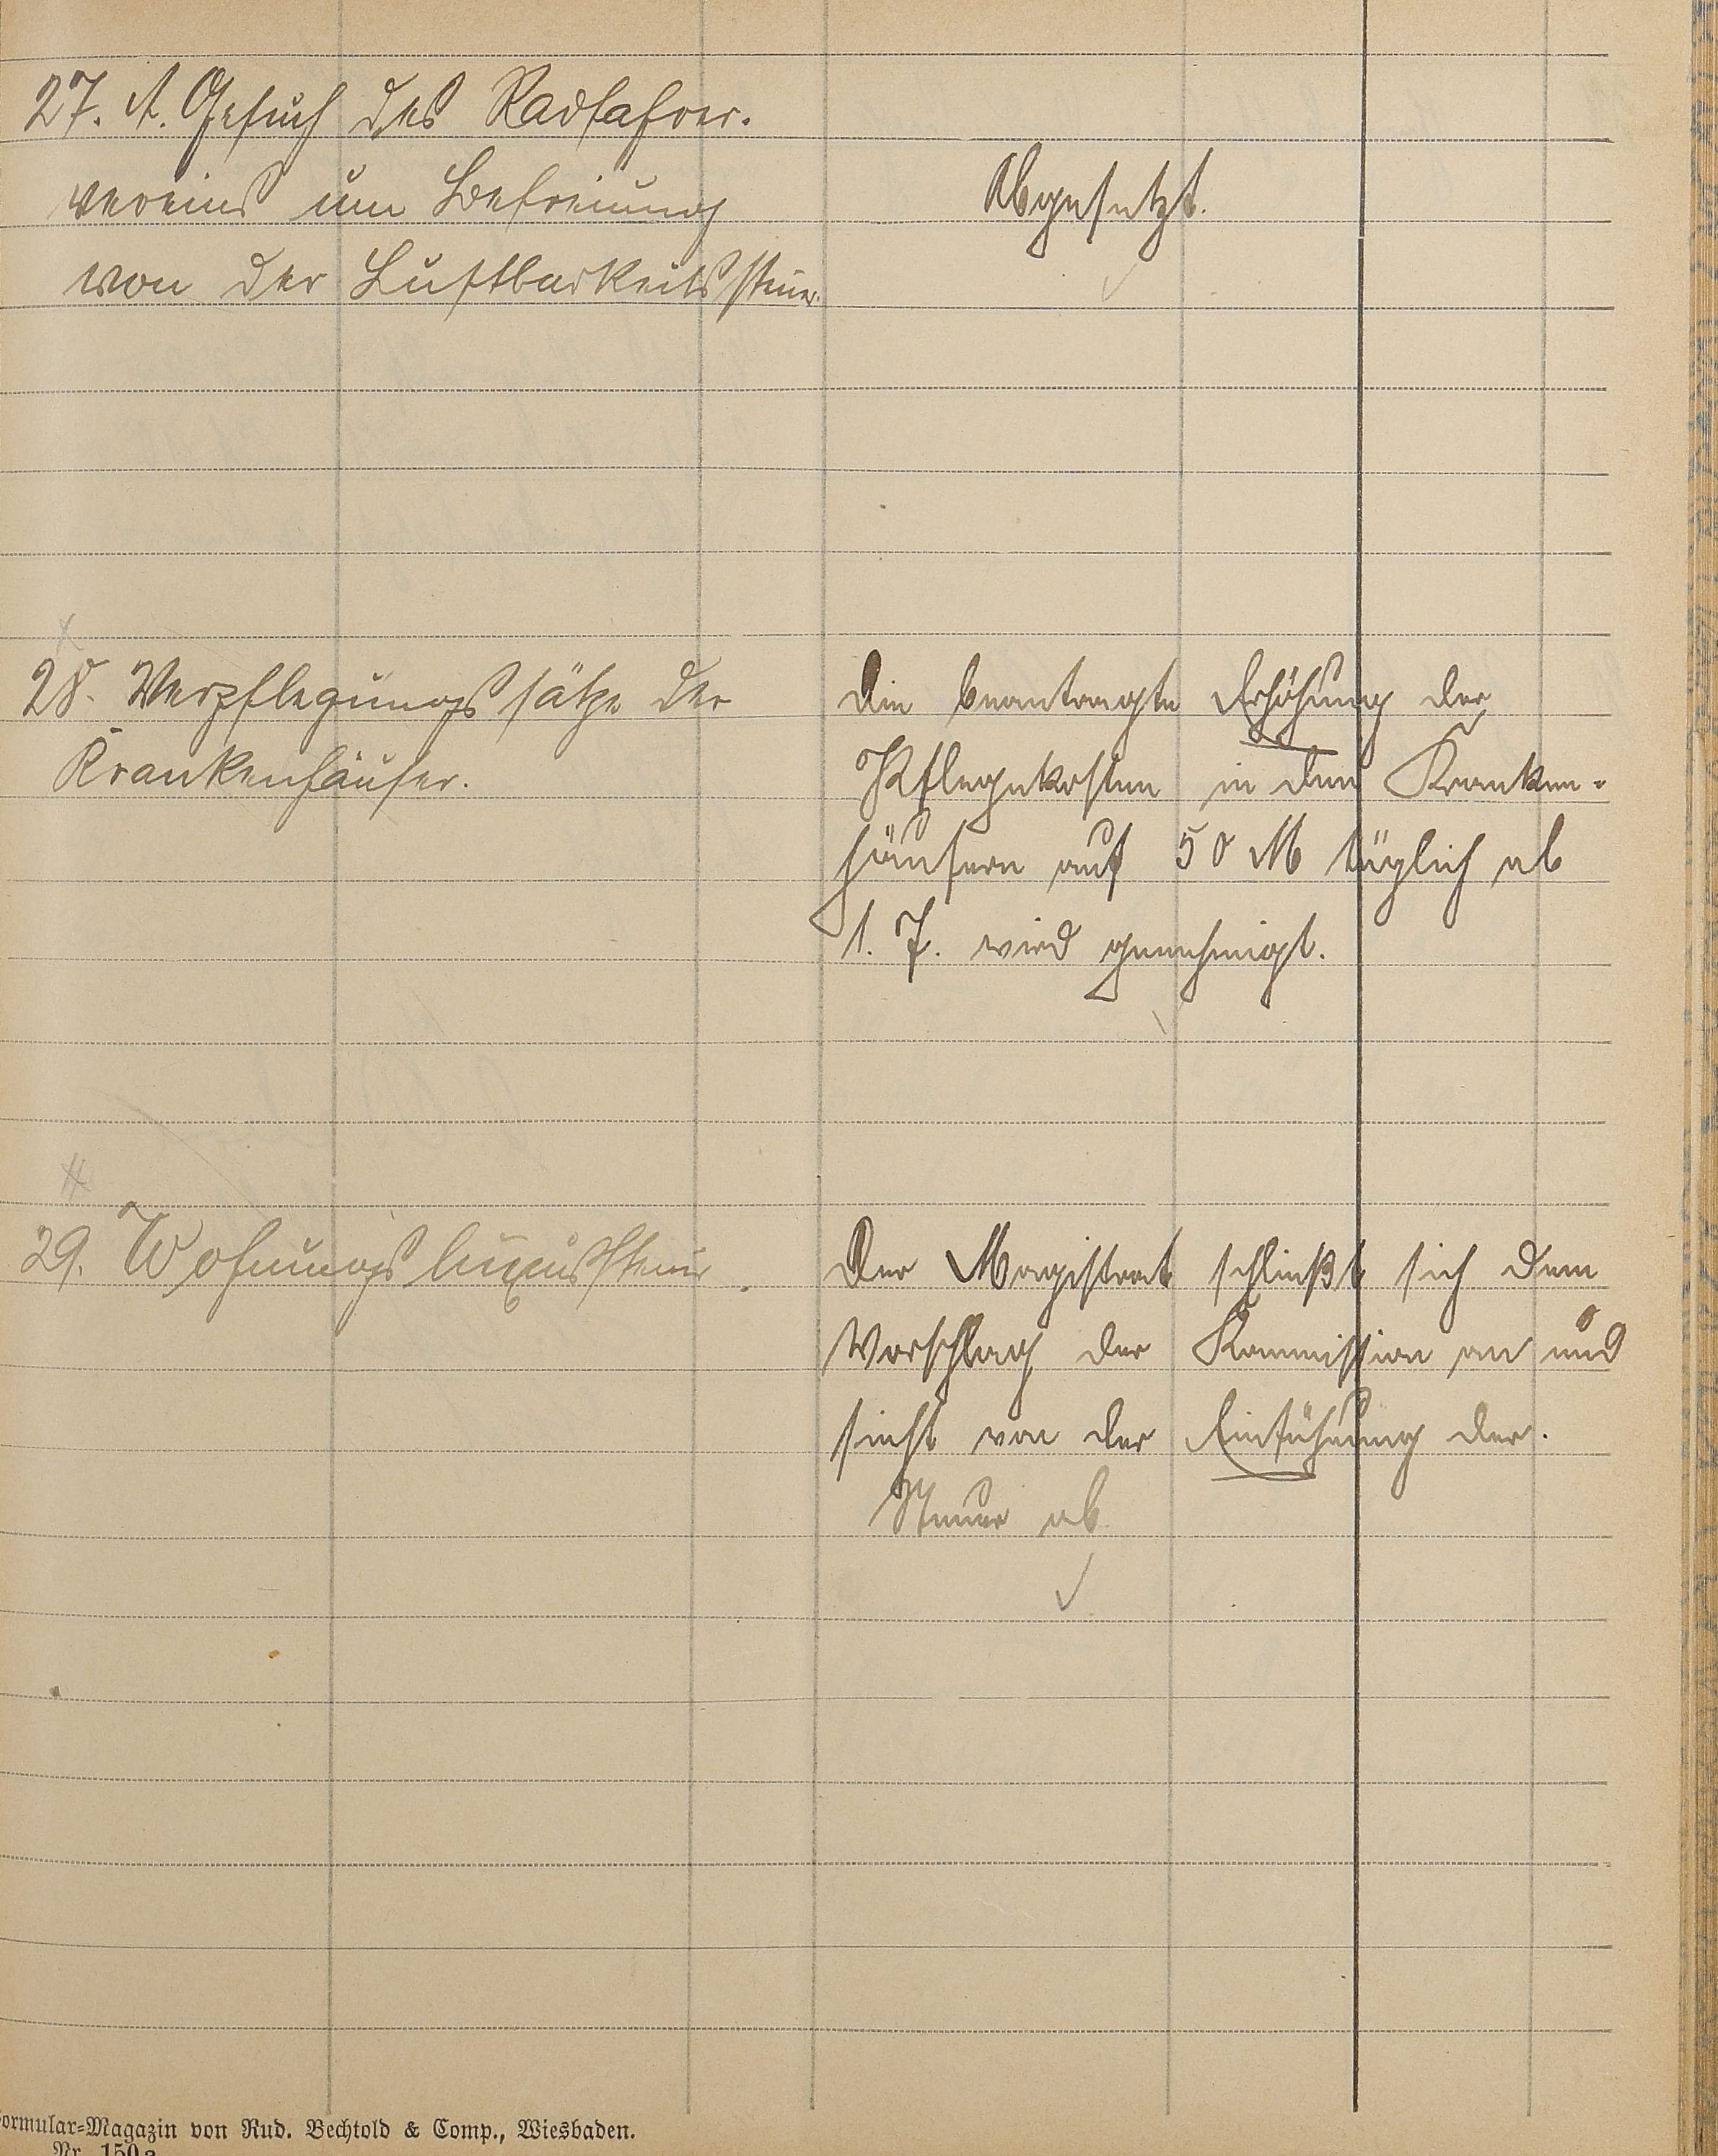 27. A. Gesuch des Radfahrer-
vereins um Befreiung
von der Lustbarkeitssteuer.
Abgesetzt.
28. Verpflegungssätze der
Krankenhäuser.
Die beantragte Erhöhung der
Pflegekosten in den Kranken-
häusern auf 50 M täglich ab
1. 7. wird genehmigt.
29. Wohnungsluxussteuer.
Der Magistrat schließt sich dem
Vorschlag der Kommission an und
sieht von der Einführung der
Steuer ab
Formular-Magazin von Rud. Bechtold & Comp., Wiesbaden.
Nr. 150a